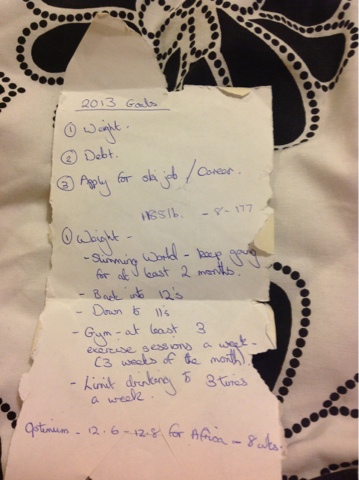 2013 Goals
① Weight.
② Debt.
③ Apply for ski job / Career.
- 8 - 177
① Weight -
- Slimming World - keep going
for at least 2 months.
- Back into 12's
- Down to 11's
- Gym - at least 3
exercise sessions a week -
(3 weeks of the month).
- Limit drinking to 3 times
a week.
Optimum - 12.6 - 12.8 for Africa - 8 wks.